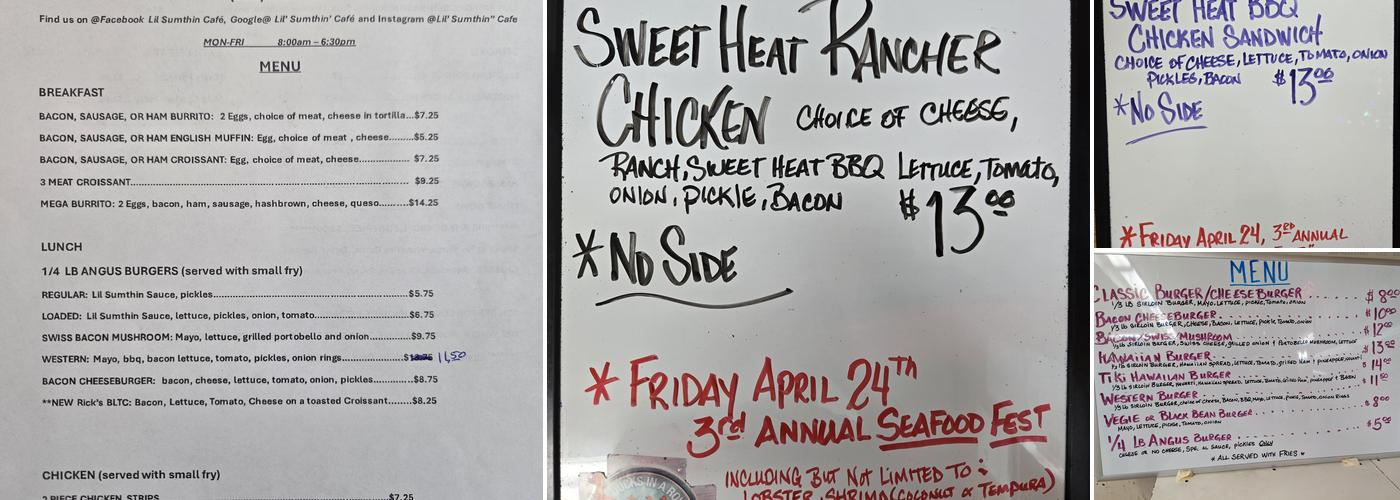 Find us on @Facebook Lil Sumthin Café, Google@ Lil' Sumthin' Café and Instagram @Lil' Sumthin'' Cafe
MON-FRI 8:00am – 6:30pm
MENU
BREAKFAST
BACON, SAUSAGE, OR HAM BURRITO: 2 Eggs, choice of meat, cheese in tortilla...$7.25
BACON, SAUSAGE, OR HAM ENGLISH MUFFIN: Egg, choice of meat , cheese.........$5.25
BACON, SAUSAGE, OR HAM CROISSANT: Egg, choice of meat, cheese................ $7.25
3 MEAT CROISSANT.................................................................................... $9.25
MEGA BURRITO: 2 Eggs, bacon, ham, sausage, hashbrown, cheese, queso..........$14.25
LUNCH
1/4 LB ANGUS BURGERS (served with small fry)
REGULAR: Lil Sumthin Sauce, pickles...........................................................$5.75
LOADED: Lil Sumthin Sauce, lettuce, pickles, onion, tomato............................$6.75
SWISS BACON MUSHROOM: Mayo, lettuce, grilled portobello and onion............$9.75
WESTERN: Mayo, bbq, bacon lettuce, tomato, pickles, onion rings...................$ 11,50
BACON CHEESEBURGER: bacon, cheese, lettuce, tomato, onion, pickles............$8.75
**NEW Rick's BLTC: Bacon, Lettuce, Tomato, Cheese on a toasted Croissant......$8.25
CHICKEN (served with small fry)
2 PIECE CHICKEN STRIPS..............................................................$7.25
SWEET HEAT RANCHER
CHICKEN CHOICE OF CHEESE,
RANCH, SWEET HEAT BBQ LETTUCE, TOMATO,
ONION, PICKLE, BACON $13.00
*NO SIDE
* FRIDAY APRIL 24TH
3rd ANNUAL SEAFOOD FEST
INCLUDING BUT NOT LIMITED TO:
LOBSTER, SHRIMP (COCONUT OR TEMPURA)
SWEET HEAT BBQ
CHICKEN SANDWICH
CHOICE OF CHEESE, LETTUCE, TOMATO, ONION
PICKLES, BACON $13.00
*NO SIDE
* FRIDAY APRIL 24, 3RD ANNUAL
MENU
CLASSIC BURGER/CHEESEBURGER $8.00
1/3 LB SIRLOIN BURGER, MAYO, LETTUCE, PICKLE, TOMATO, ONION
BACON CHEESEBURGER $10.00
1/3 LB SIRLOIN BURGER, CHEESE, BACON, LETTUCE, PICKLE, TOMATO, ONION
BACON/SWISS MUSHROOM $12.00
1/3 LB SIRLOIN BURGER, SWISS CHEESE, GRILLED ONION & PORTOBELLO MUSHROOM, LETTUCE
HAWAIIAN BURGER $13.00
1/3 LB SIRLOIN BURGER, HAWAIIAN SPREAD, LETTUCE, TOMATO, GRILLED HAM & PINEAPPLE
TIKI HAWAIIAN BURGER $14.00
1/3 LB SIRLOIN BURGER, HAWAIIAN SPREAD, LETTUCE, TOMATO, PINEAPPLE & BACON
WESTERN BURGER $11.00
1/3 LB SIRLOIN BURGER, CHOICE OF CHEESE, BACON, BBQ, MAYO, LETTUCE, PICKLE, TOMATO, ONION RINGS
VEGIE OR BLACK BEAN BURGER $8.00
MAYO, LETTUCE, PICKLE, TOMATO, ONION
1/4 LB ANGUS BURGER $5.00
CHEESE OR NO CHEESE, SAUCE, PICKLES ONLY
* ALL SERVED WITH FRIES *